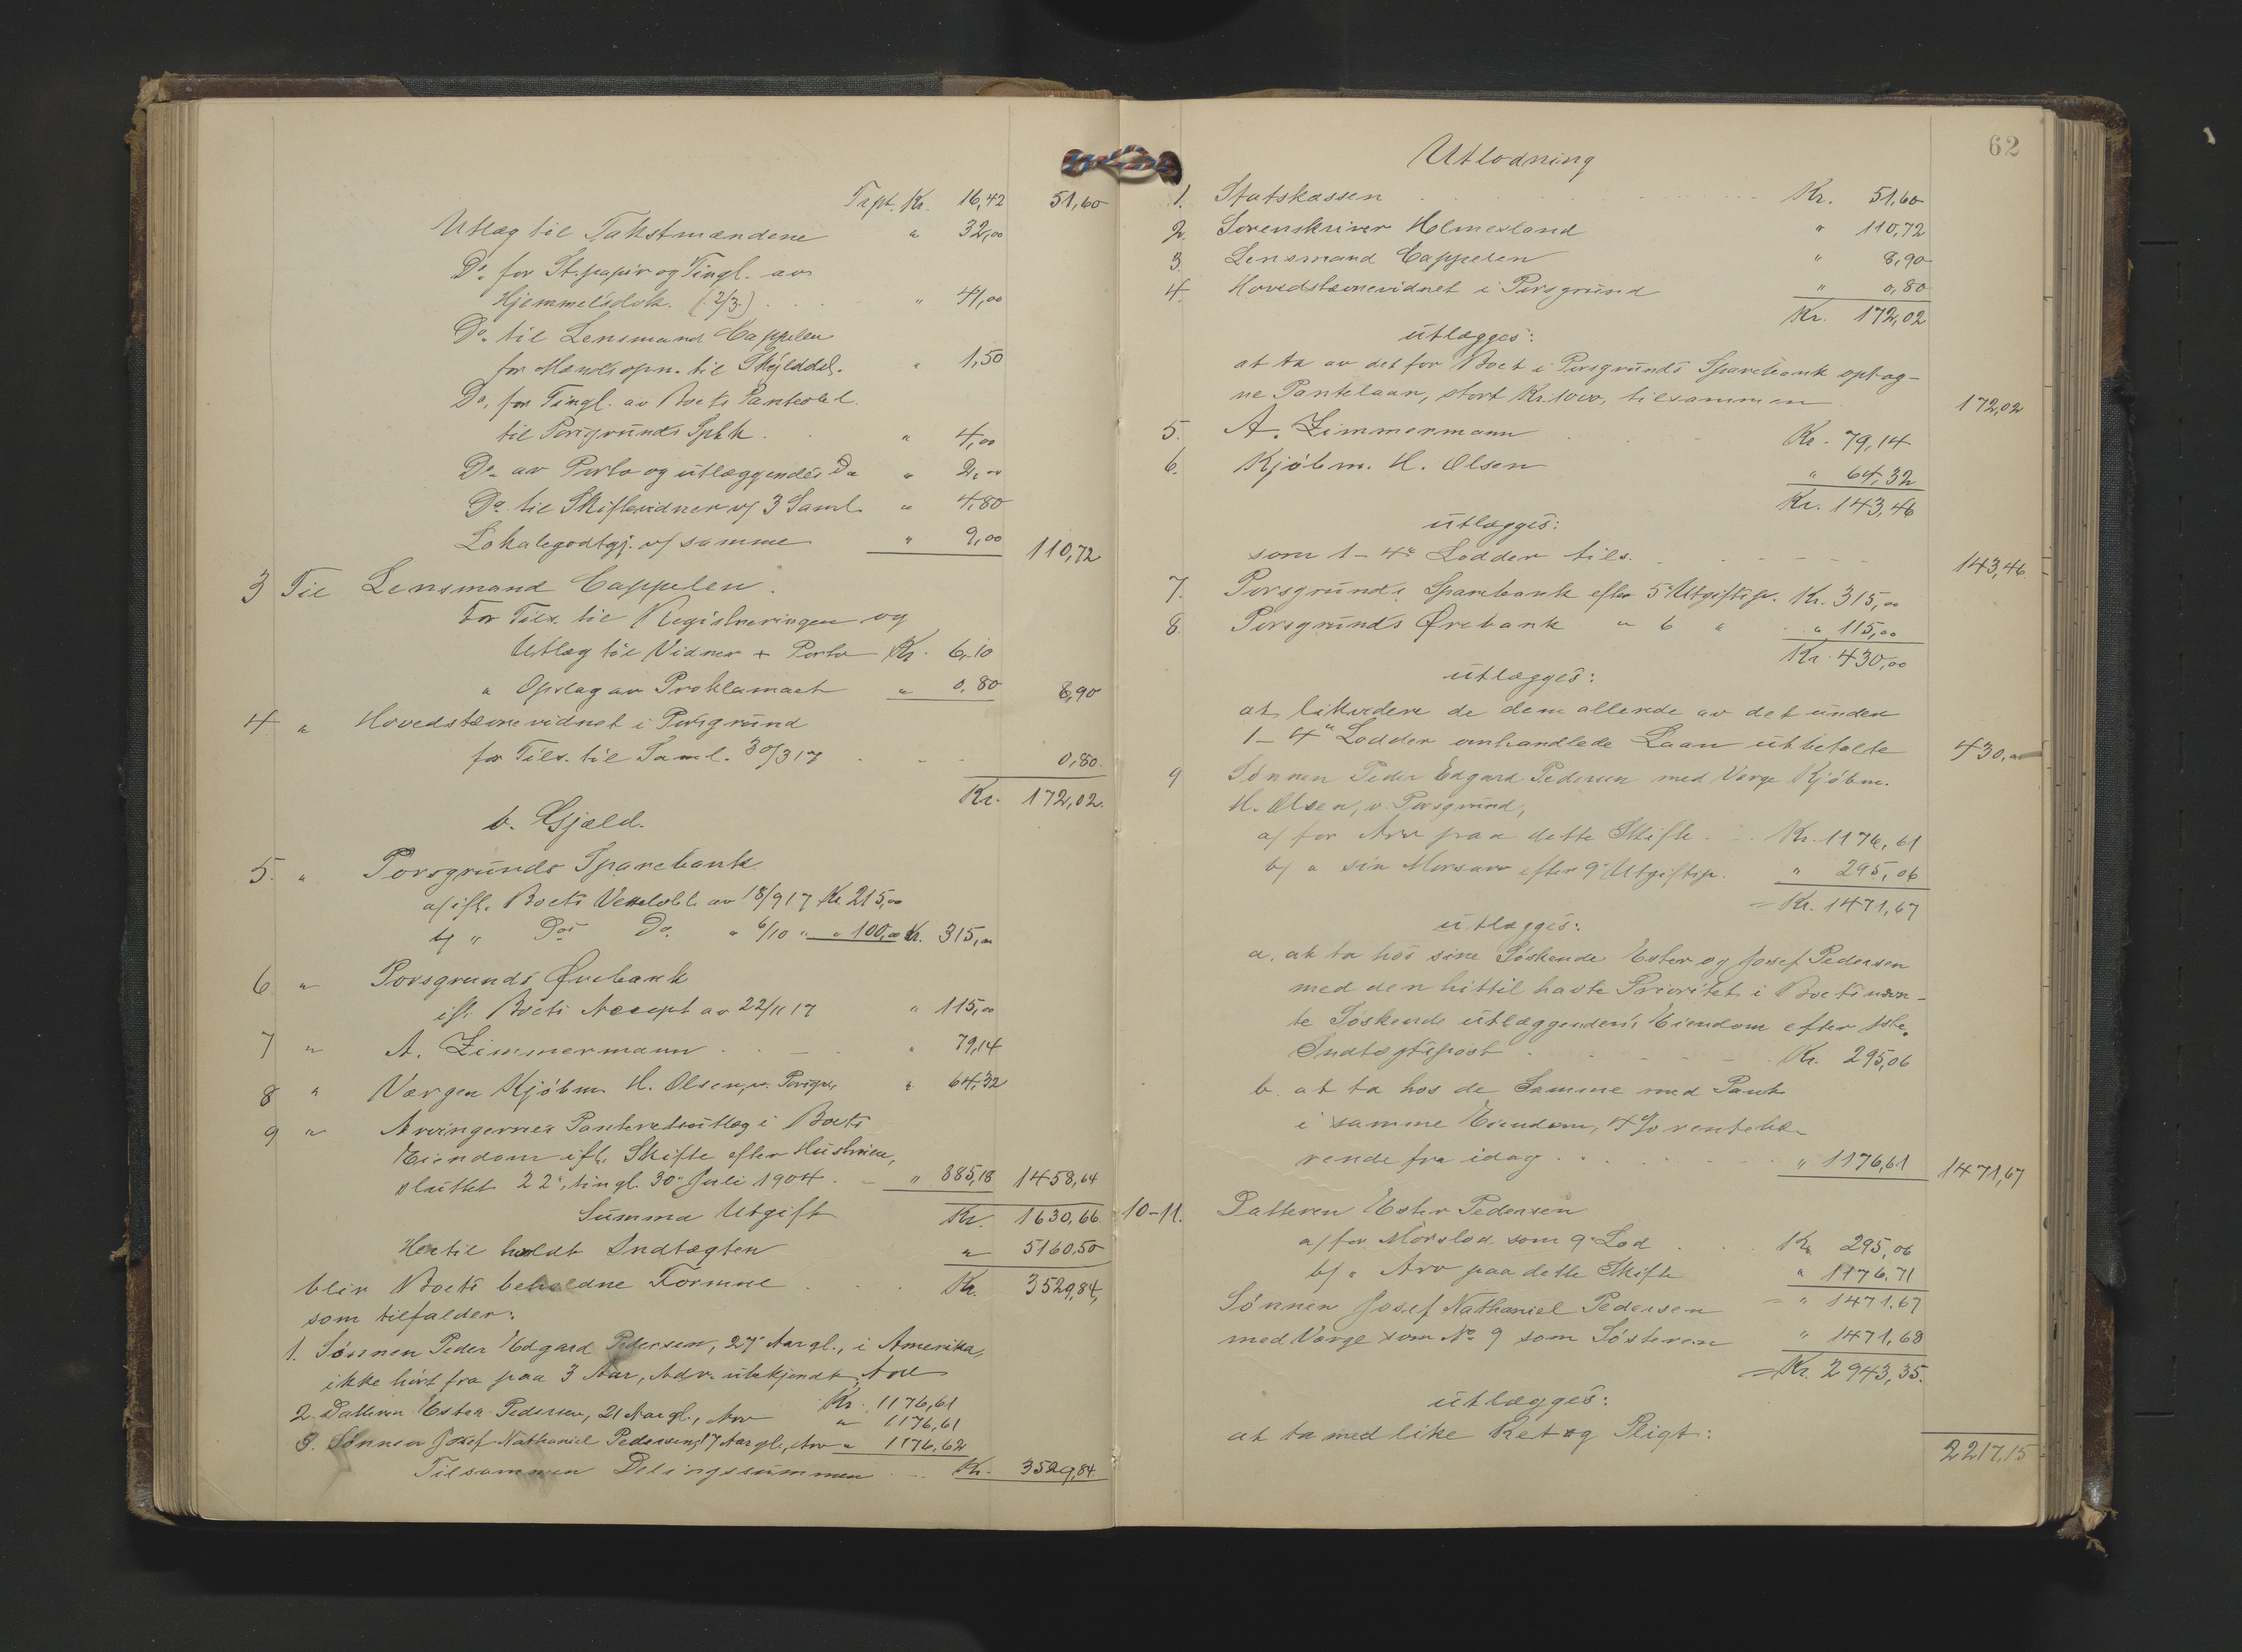 Trpt. Kr. 16,42 51,60
Utlæg til Takstmændene " 32,00
Do. for St.papir og Tingl. av
Hjemmelsdok. (2/3) " 41,00
Do. til Lensmand Cappelen
for Mandsopn. til Skylddel. " 1,50
Do. for Tingl. av Boets Panteobl.
til Porsgrunds Spbk. " 4,00
Do. av Porto og utlæggendes Do " 2,00
Do. til Skiftevidner v/ 3 Saml. " 4,80
Lokalegodtgj. v/ samme " 9,00 110,72
3 Til Lensmand Cappelen.
For Tils. til Registreringen og
Utlæg til Vidner + Porto Kr. 6,10
" Opslag av Proklamaet " 0,80 8,90
4 " Hovedstævnevidnet i Porsgrund
for Tils. til Saml. 30/3 17 0,80.
Kr. 172,02.
b. Gjæld.
5. " Porsgrunds Sparebank
a/ ifl. Boets Vexelobl. av 18/9 17 Kr. 215,00
b/ " Dos Do. " 6/10 " " 100,00 Kr. 315,00
6 " Porsgrunds Ørebank
ifl. Boets Accept av 22/11 17 " 115,00
7 " A. Zimmermann " 79,14
8 " Værgen Kjøbm. H. Olsen, v. Porsgr., " 64,32
9 " Arvingernes Panteretsutlæg i Boets
Eiendom ifl. Skifte efter Hustruen,
sluttet 22", tingl. 30" Juli 1904 " 885,18 1458,64
Summa Utgift Kr. 1630,66
Hertil holdt Indtægten " 5160,50
blir Boets beholdne Formue Kr. 3529,84,
som tilfalder:
1. Sønnen Peder Edgard Pedersen, 27 Aar gl., i Amerika,
ikke hørt fra paa 3 Aar, Adr. ubekjendt, Arv
Kr. 1176,61
2. Datteren Ester Pedersen, 21 Aar gl., Arv " 1176,61
3. Sønnen Josef Nathaniel Pedersen, 17 Aar gl., Arv " 1176,62
Tilsammen Delingssummen Kr. 3529,84
62
Utlodning
1. Statskassen Kr. 51,60
2. Sorenskriver Holmesland " 110,72
3. Lensmand Cappelen " 8,90
4. Hovedstævnevidnet i Porsgrund " 0,80
Kr. 172,02
utlægges:
at ta av det for Boet i Porsgrunds Sparebank optag-
ne Pantelaan, stort Kr. 1000, tilsammen 172,02
5. A. Zimmermann Kr. 79,14
6. Kjøbm. H. Olsen " 64,32
Kr. 143,46
utlægges:
som 1-4" Lodder tils. 143,46
7. Porsgrunds Sparebank efter 5" Utgiftsp. Kr. 315,00
8. Porsgrunds Ørebank " 6 " " 115,00
Kr. 430,00
utlægges:
at likvidere de dem allerede av det under
1-4" Lodder omhandlede Laan utbetalte 430,00
9 Sønnen Peder Edgard Pedersen med Verge Kjøbm.
H. Olsen, v. Porsgrund,
a/ for Arv paa dette Skifte Kr. 1176,61
b/ " sin Morsarv efter 9" Utgiftsp. " 295,06
= Kr. 1471,67
utlægges:
a. at ta hos sine Søskende Ester og Josef Pedersen
med den hittil havte Prioritet i Boets nævn-
te Søskende utlæggendes Eiendom efter 1ste
Indtægtspost Kr. 295,06
b. at ta hos de Samme med Pant
i samme Eiendom, 4% rentebæ-
rende fra idag " 1176,61 1471,67
10-11. Datteren Ester Pedersen
a/ for Morslod som 9" Lod Kr. 295,06
b/ " Arv paa dette Skifte " 1176,71
= " 1471,67
Sønnen Josef Nathaniel Pedersen
med Verge som No 9 som Søsteren " 1471,68
= Kr. 2943,35.
utlægges:
at ta med like Ret og Pligt:
2217,15